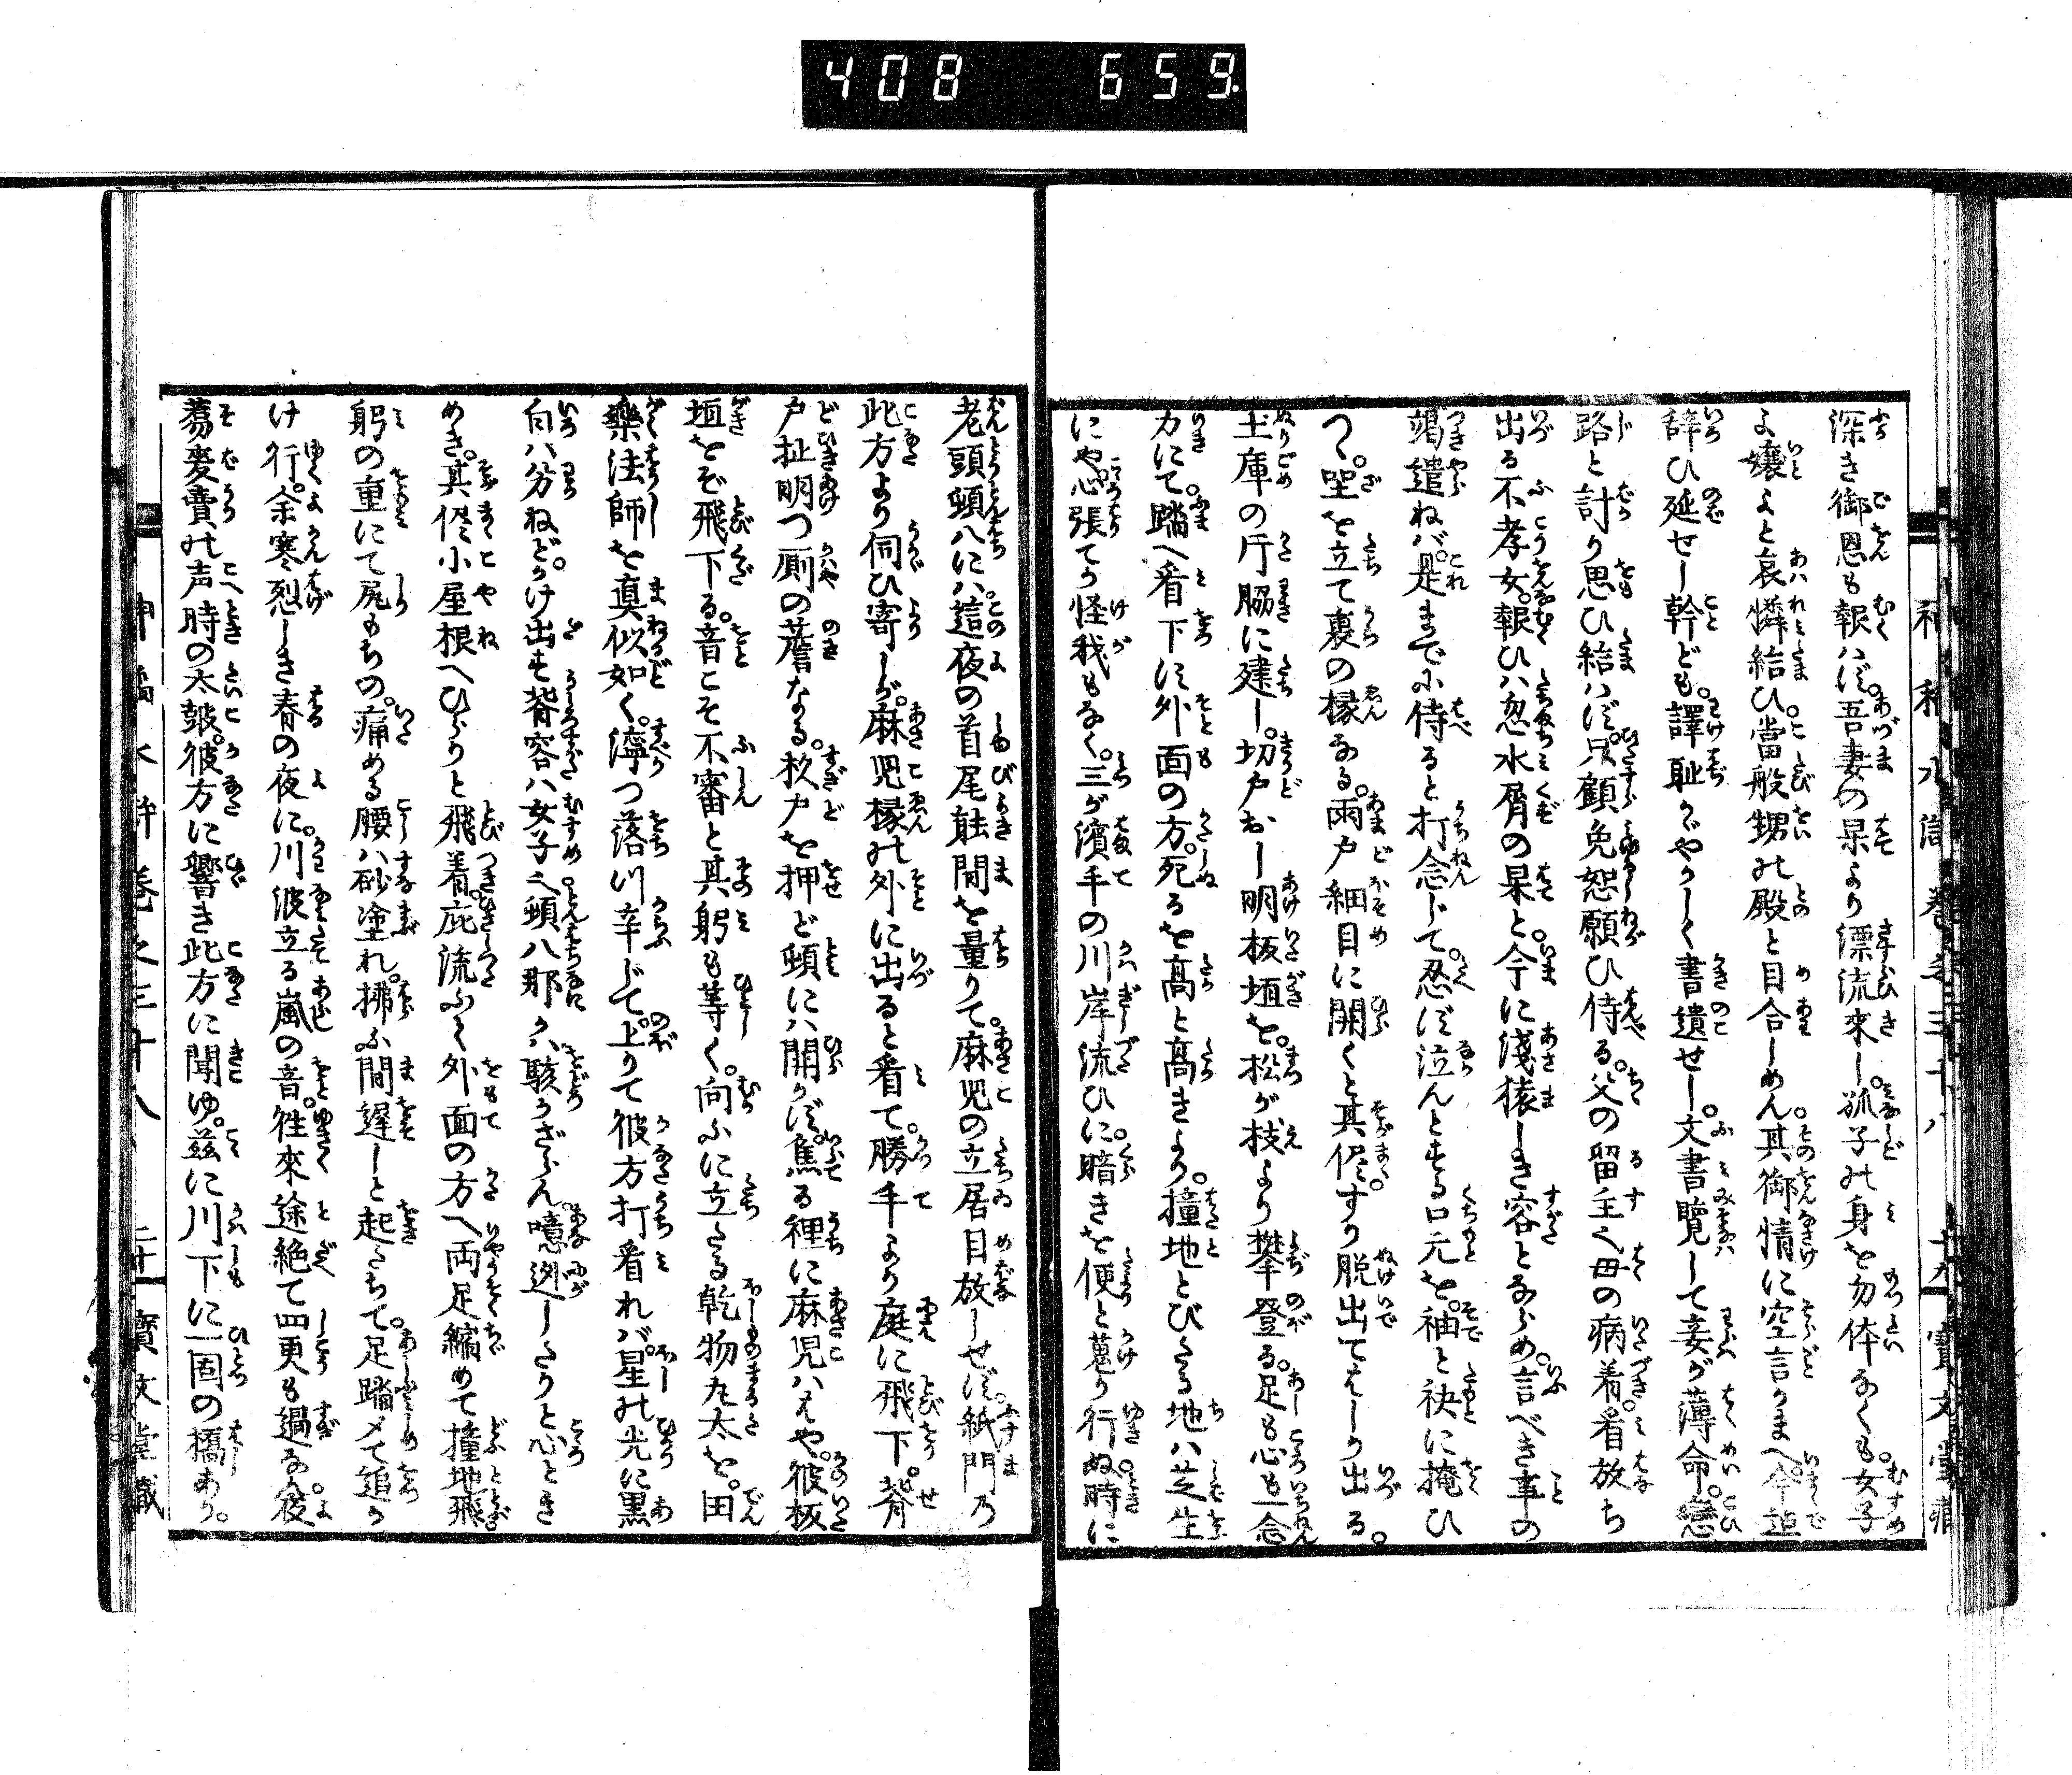 408 659.
深き御恩も報ハず。吾妻の果より漂流來し。孤子の身を勿体なくも。女子
よ嬢よと哀憐給ひ。當般甥の殿と目合しめん。其御情に空言りまへ。今迄
辞ひ延せし幹ども。譯耻がやかしく書遺せし。文書覧して妾が薄命。戀
路と計り思ひ給ハず。只顧免恕願ひ侍る。父の留主之母の病着。看放ち
出る不孝女。報ひハ忽水屑の果と。今に淺猿しき容とならめ。言べき事の
竭遣ねバ。是まで小侍ると打念じて。忍ず泣んとする口元を。袖と袂に掩ひ
つゝ。坐を立て裏の縁なる。雨戸細目に開くと其侭。すり脱出てそしり出る。
土庫の庁脇に建し。切戸おし明板垣を。松が枝より攀登る。足も心も一念
力にて。踏へ看下ば外面の方。死るを髙と髙きより。撞地とびたる地ハ芝生
にや。心張てか怪我もなく。三が濱手の川岸流ひに。暗きを便と蒐り行ぬ。時に
老頭頓八にハ。這夜の首尾能間を量りて。麻児の立居目放しせず。紙門乃
此方より伺ひ寄しが。麻児縁の外に出ると看て。勝手より庭に飛下。脊
戸扯明つ厠の簷なる。杉戸を押ど頓にハ開かず。焦る裡に麻児ハはや。彼板
垣をぞ飛下る。音こそ不審と其躬も等く。向ふに立たる乾物丸太を。田
樂法師を真似如く。滑つ落つ辛じて。上りて彼方打看れバ。星の光に黒
白ハ分ねど。かけ出す背容ハ女子之。頓八那かハ駭かざらん。噫迯したりと心とき
めき。其侭小屋根へひらりと飛着。庇流ふく外面の方へ両足縮めて撞地飛。
躬の重にて尻もちの。痛める腰ハ砂塗れ。拂ふ間遅しと起たちて。足踏〆て追か
け行。余寒烈しき春の夜に。川波立る嵐の音。徃來途絶て四更も過る夜
蕎麥賣の声時の太皷。彼方に響き此方に聞ゆ。茲に川下に一固の橋あり。